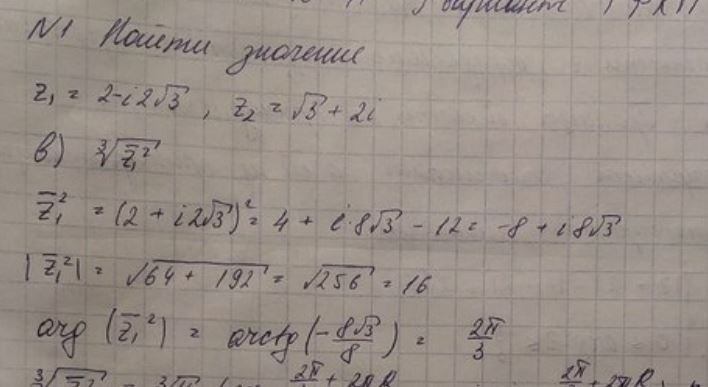 вариант
N1 Найти значение
z₁ = 2-i2√3 , z₂ = √3 + 2i
в) ∛(z̄₁²)
z̄₁² = (2 + i2√3)² = 4 + i·8√3 - 12 = -8 + i8√3
|z̄₁²| = √(64 + 192) = √256 = 16
arg (z̄₁²) = arctg (-8√3/8) = 2π/3